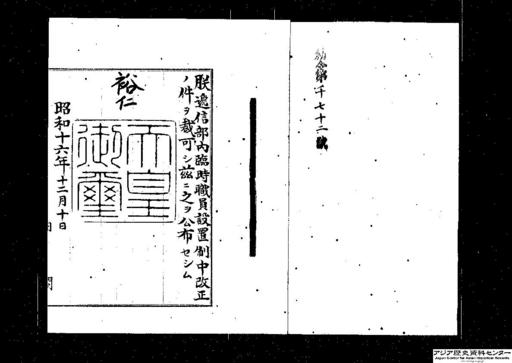 勅令第千七十二號
朕遞信部內臨時職員設置制中改正
ノ件ヲ裁可シ茲ニ之ヲ公布セシム
裕仁
天皇御璽
昭和十六年十二月十日
アジア歴史資料センター
Japan Center for Asian Historical Records